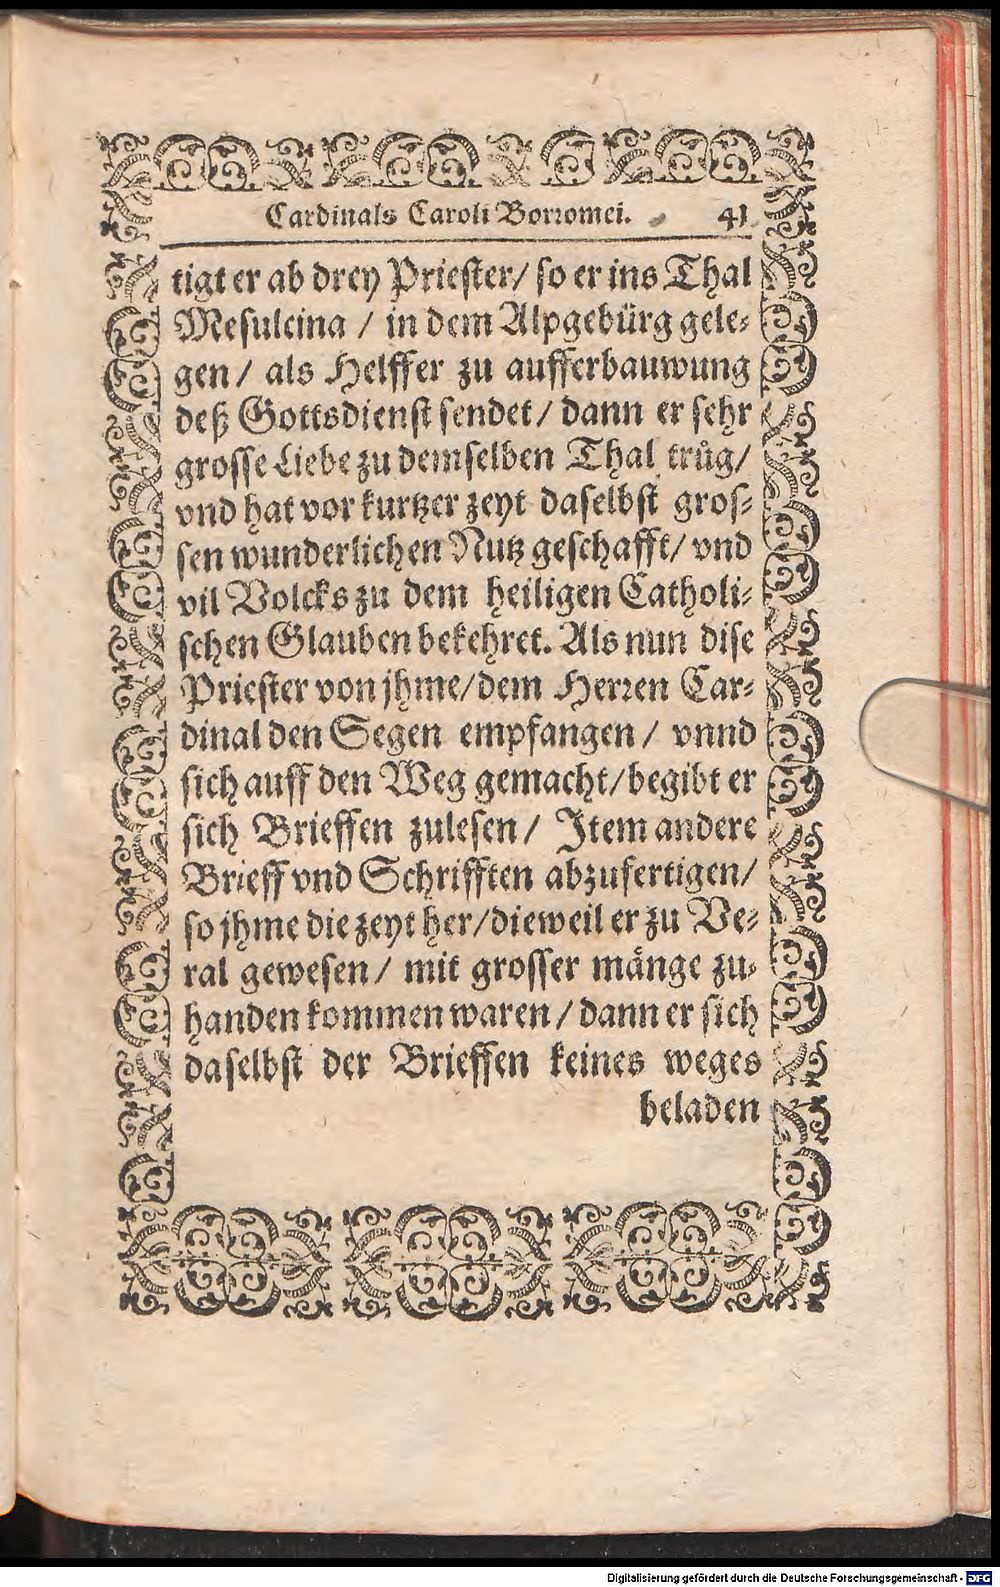 Cardinals Caroli Borromei. 41
tigt er ab drey Priester/ so er ins Thal
Mesulcina / in dem Alpgebürg gele⸗
gen / als Helffer zu aufferbauwung
deß Gottsdienst sendet / dann er sehr
grosse Liebe zu demselben Thal trůg/
vnd hat vor kurtzer zeyt daselbst gros⸗
sen wunderlichen Nutz geschafft/ vnd
vil Volcks zu dem heiligen Catholi⸗
schen Glauben bekehret. Als nun dise
Priester von jhme/dem Herren Car⸗
dinal den Segen empfangen / vnnd
sich auff den Weg gemacht/begibt er
sich Brieffen zulesen / Item andere
Brieff vnd Schrifften abzufertigen/
so jhme die zeyt her/dieweil er zu Ve⸗
ral gewesen / mit grosser mänge zu⸗
handen kommen waren / dann er sich
daselbst der Brieffen keines weges
beladen
Digitalisierung gefördert durch die Deutsche Forschungsgemeinschaft - DFG